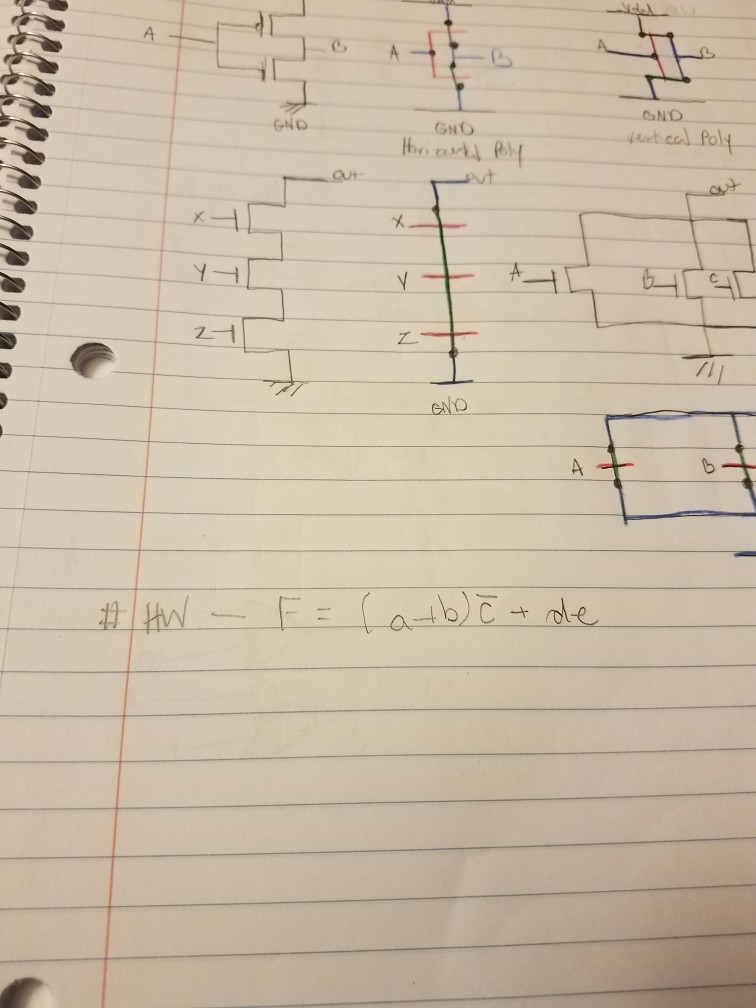 Vdd
A B A B A B
GND GND GND
Horizontal Poly vertical Poly
out out out
X X
Y Y A B C
Z Z
GND
A B
# HW — F = (a+b)c̅ + de